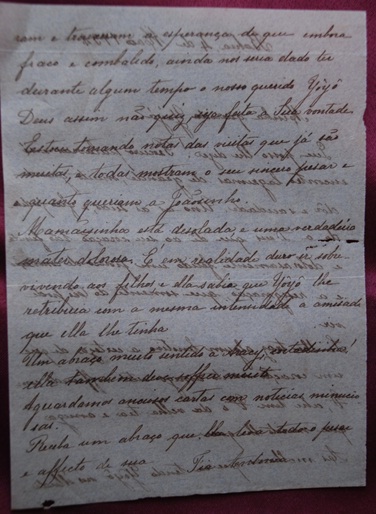 ram e trouxeram a esperança de que embora
fraco e combalido, ainda nos seria dado ter
durante algum tempo o nosso querido Yôyô
Deus assim não quiz, seja feita a Sua vontade
Estou tomando notas das visitas que já são
muitas, e todas mostram o seu sincero pesar e
o quanto queriam a Joãosinho.
Mamãesinha está desolada, é uma verdadeira
mater dolorosa. É em realidade duro ir sobre
vivendo aos filhos e ella sabia que Yôyô lhe
retribuia com a mesma intensidade a amisade
que ella lhe tinha
Um abraço muito sentido a
ella tambem deve soffrer muito
Aguardamos anciosos cartas com noticias minucio
sas.
Receba um abraço que lhe leva todo o pesar
e affecto de sua Tia